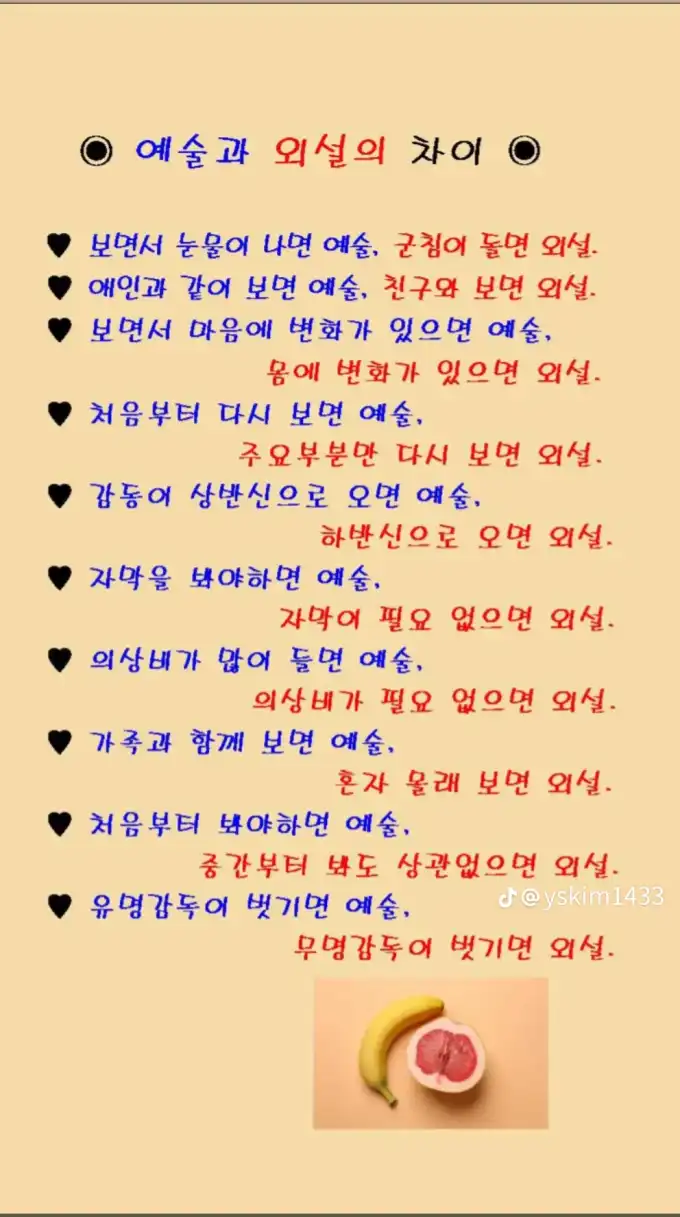 ◉ 예술과 외설의 차이 ◉
♥ 보면서 눈물이 나면 예술, 군침이 돌면 외설.
♥ 애인과 같이 보면 예술, 친구와 보면 외설.
♥ 보면서 마음에 변화가 있으면 예술,
몸에 변화가 있으면 외설.
♥ 처음부터 다시 보면 예술,
주요부분만 다시 보면 외설.
♥ 감동이 상반신으로 오면 예술,
하반신으로 오면 외설.
♥ 자막을 봐야하면 예술,
자막이 필요 없으면 외설.
♥ 의상비가 많이 들면 예술,
의상비가 필요 없으면 외설.
♥ 가족과 함께 보면 예술,
혼자 몰래 보면 외설.
♥ 처음부터 봐야하면 예술,
중간부터 봐도 상관없으면 외설.
♥ 유명감독이 벗기면 예술,
@yskim1433
무명감독이 벗기면 외설.